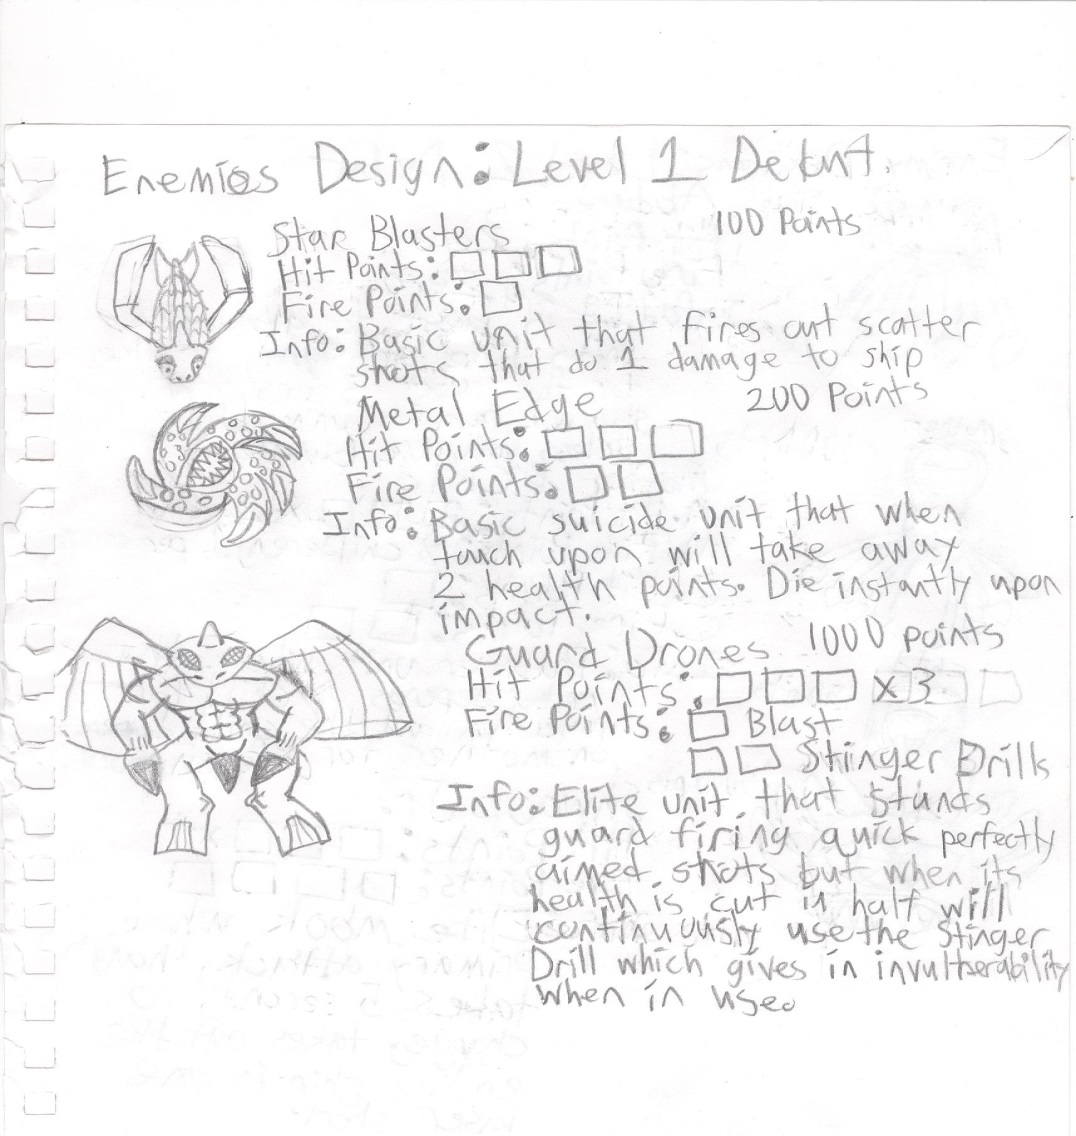 Enemies Design: Level 1 Debut.
100 Points
Star Blasters
Hit Points:
Fire Points:
Info: Basic unit that fires out scatter
shots that do 1 damage to ship
200 Points
Metal Edge
Hit Points:
Fire Points:
Info: Basic suicide unit that when
touch upon will take away
2 health points. Die instantly upon
impact.
Guard Drones 1000 points
Hit Points: x3
Fire Points: Blast
Stinger Drills
Info: Elite unit that stands
guard firing quick perfectly
aimed shots but when its
health is cut in half will
continuously use the Stinger
Drill which gives in invulterability
when in use.